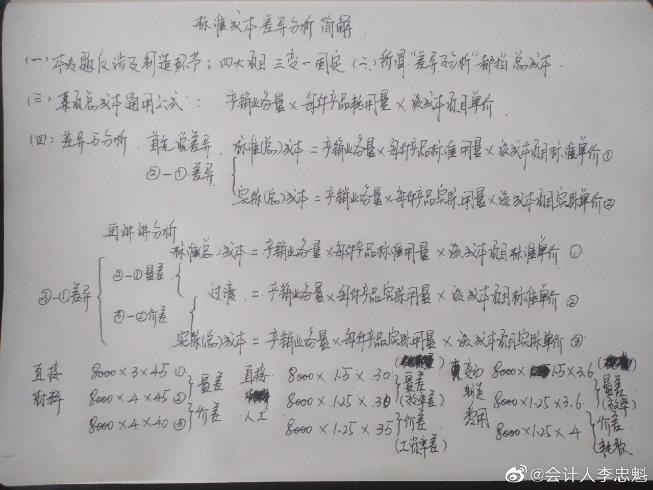 标准成本差异分析 简解
(一)本专题仅涉及制造环节；四大项目 三变一固定 (二)所谓"差异与分析"都指总成本
(三)某项总成本通用公式： 产销业务量×每件产品耗用量×该成本项目单价
(四)差异与分析 首先说差异 标准(总)成本=产销业务量×每件产品标准用量×该成本项目标准单价①
②-①差异
实际(总)成本=产销业务量×每件产品实际用量×该成本项目实际单价②
再讲讲分析
标准(总)成本=产销业务量×每件产品标准用量×该成本项目标准单价 ①
③-①差异 ②-①量差 过渡 =产销业务量×每件产品实际用量×该成本项目标准单价 ②
③-②价差
实际(总)成本=产销业务量×每件产品实际用量×该成本项目实际单价③
直接 8000×3×45① 直接 8000×1.5×30 变动 8000×1.5×3.6
材料 8000×4×45② 量差 8000×1.25×30 量差 (效率差) 制造 8000×1.25×3.6 量差 (效率)
8000×4×40③ 价差 人工 8000×1.25×35 价差 (工资率差) 费用 8000×1.25×4 价差 (耗散)
@会计人李忠魁